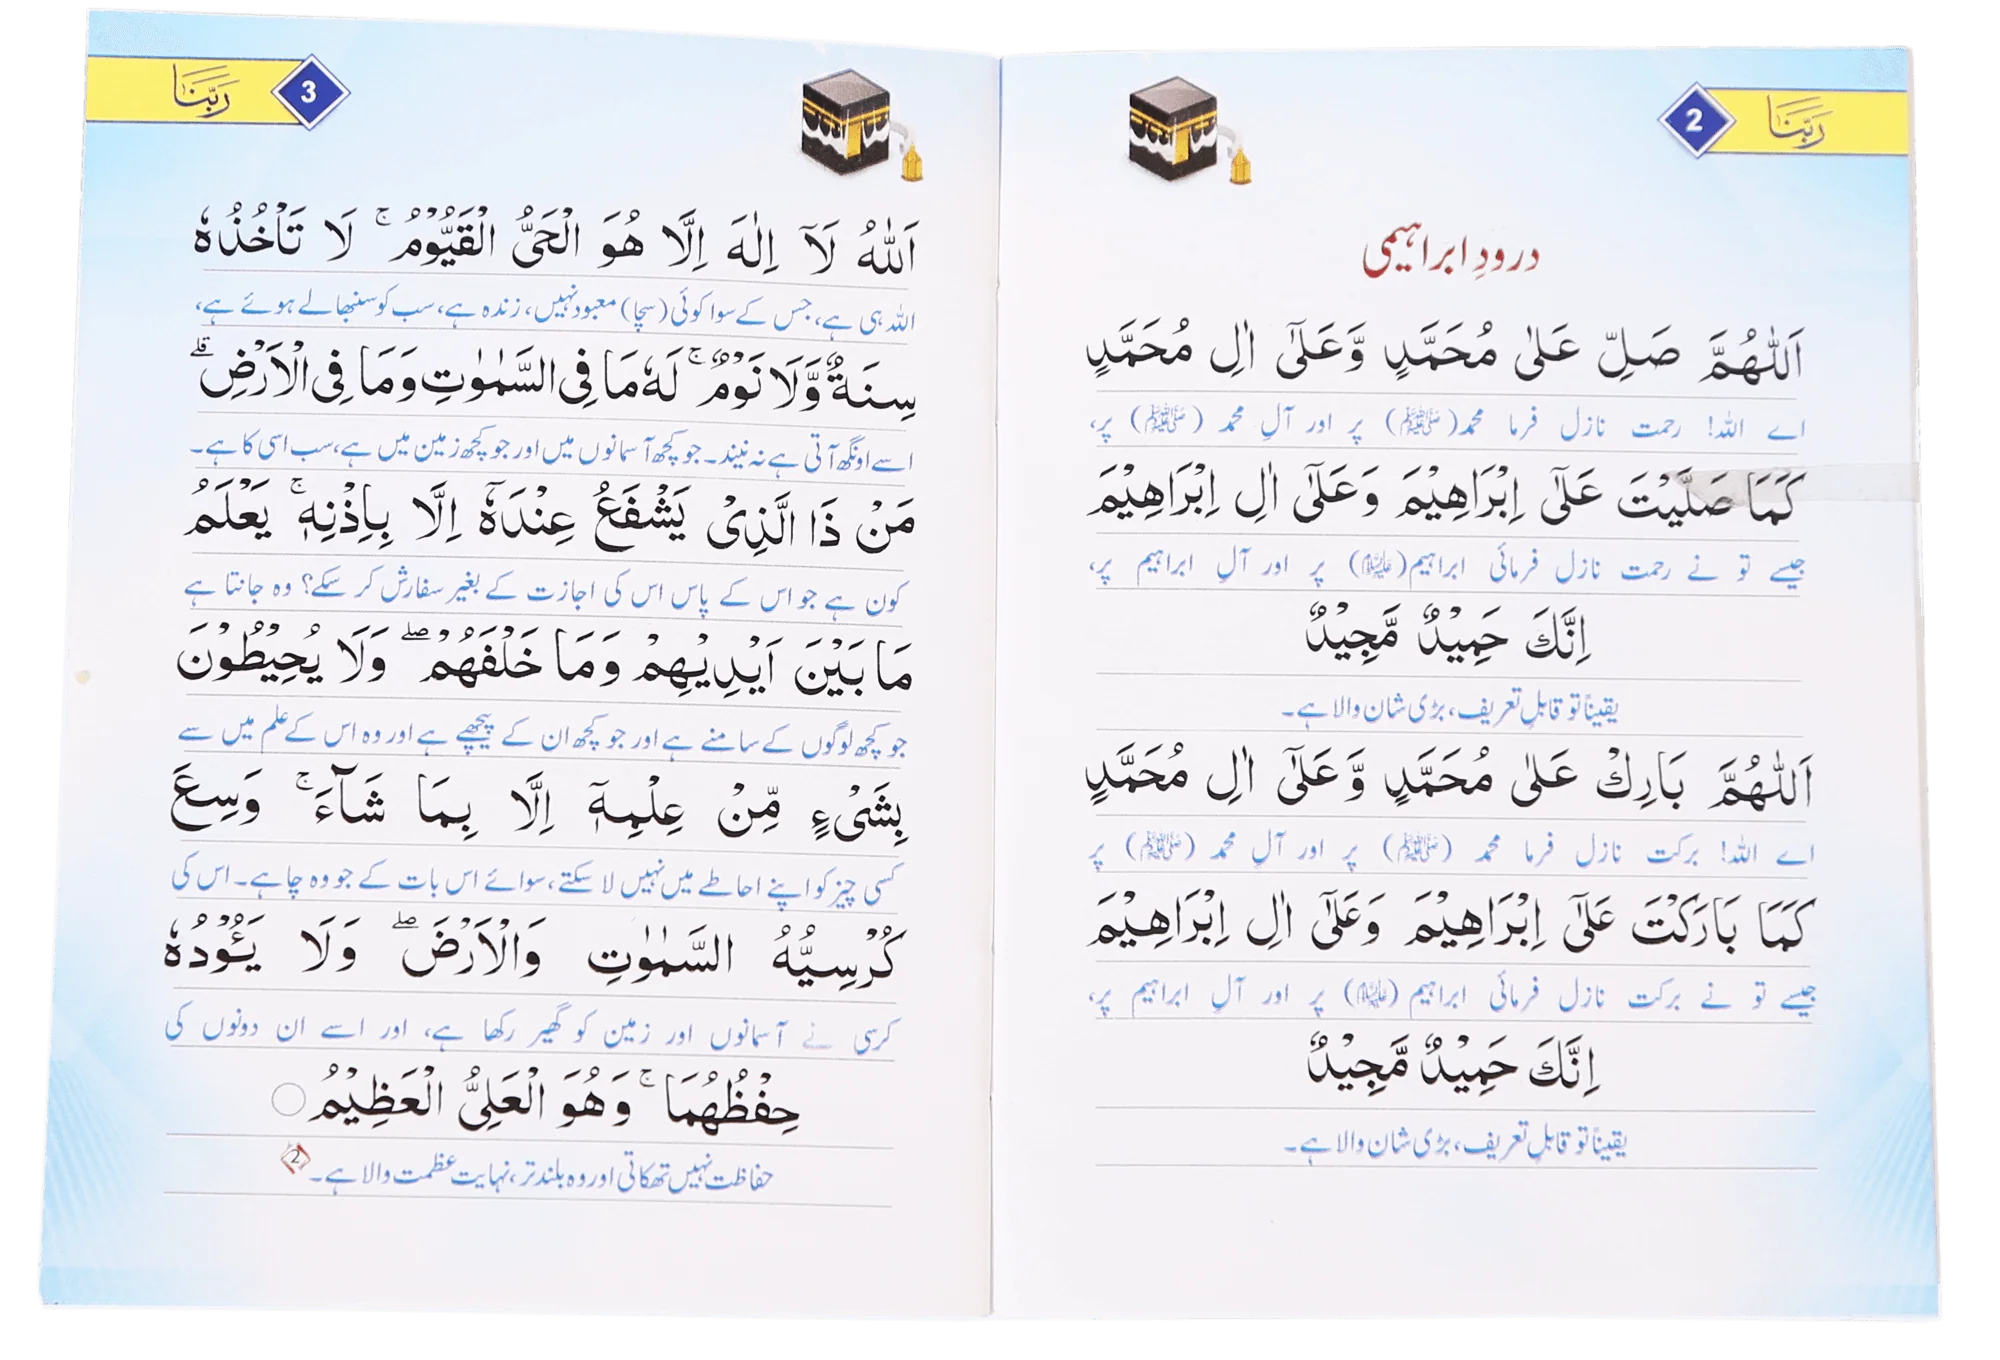 ربنا
2
درودِ ابراہیمی
اَللّٰهُمَّ صَلِّ عَلٰى مُحَمَّدٍ وَّعَلٰٓى اٰلِ مُحَمَّدٍ
اے اللہ! رحمت نازل فرما محمد(ﷺ) پر اور آلِ محمد (ﷺ) پر،
كَمَا صَلَّيْتَ عَلٰٓى اِبْرَاهِيْمَ وَعَلٰٓى اٰلِ اِبْرَاهِيْمَ
جیسے تو نے رحمت نازل فرمائی ابراہیم(علیہ السلام) پر اور آلِ ابراہیم پر،
اِنَّكَ حَمِيْدٌ مَّجِيْدٌ
یقیناً تو قابلِ تعریف، بڑی شان والا ہے۔
اَللّٰهُمَّ بَارِكْ عَلٰى مُحَمَّدٍ وَّعَلٰٓى اٰلِ مُحَمَّدٍ
اے اللہ! برکت نازل فرما محمد (ﷺ) پر اور آلِ محمد (ﷺ) پر
كَمَا بَارَكْتَ عَلٰٓى اِبْرَاهِيْمَ وَعَلٰٓى اٰلِ اِبْرَاهِيْمَ
جیسے تو نے برکت نازل فرمائی ابراہیم (علیہ السلام) پر اور آلِ ابراہیم پر،
اِنَّكَ حَمِيْدٌ مَّجِيْدٌ
یقیناً تو قابلِ تعریف، بڑی شان والا ہے۔
3
رَبَّنَا
اَللّٰهُ لَآ اِلٰهَ اِلَّا هُوَ الْحَىُّ الْقَيُّوْمُ ۚ لَا تَاْخُذُهٗ
اللہ ہی ہے، جس کے سوا کوئی (سچا) معبود نہیں، زندہ ہے، سب کو سنبھالے ہوئے ہے،
سِنَةٌ وَّلَا نَوْمٌ ۚ لَهٗ مَا فِى السَّمٰوٰتِ وَمَا فِى الْاَرْضِ ۗ
اسے اونگھ آتی ہے نہ نیند۔ جو کچھ آسمانوں میں اور جو کچھ زمین میں ہے، سب اسی کا ہے۔
مَنْ ذَا الَّذِىْ يَشْفَعُ عِنْدَهٗٓ اِلَّا بِاِذْنِهٖ ۚ يَعْلَمُ
کون ہے جو اس کے پاس اس کی اجازت کے بغیر سفارش کر سکے؟ وہ جانتا ہے
مَا بَيْنَ اَيْدِيْهِمْ وَمَا خَلْفَهُمْ ۖ وَلَا يُحِيْطُوْنَ
جو کچھ لوگوں کے سامنے ہے اور جو کچھ ان کے پیچھے ہے اور وہ اس کے علم میں سے
بِشَىْءٍ مِّنْ عِلْمِهٖٓ اِلَّا بِمَا شَآءَ ۚ وَسِعَ
کسی چیز کو اپنے احاطے میں نہیں لا سکتے، سوائے اس بات کے جو وہ چاہے۔ اس کی
كُرْسِيُّهُ السَّمٰوٰتِ وَالْاَرْضَ ۖ وَلَا يَـُٔوْدُهٗ
کرسی نے آسمانوں اور زمین کو گھیر رکھا ہے، اور اسے ان دونوں کی
حِفْظُهُمَا ۚ وَهُوَ الْعَلِىُّ الْعَظِيْمُ ○
حفاظت نہیں تھکاتی اور وہ بلند تر، نہایت عظمت والا ہے۔ 2